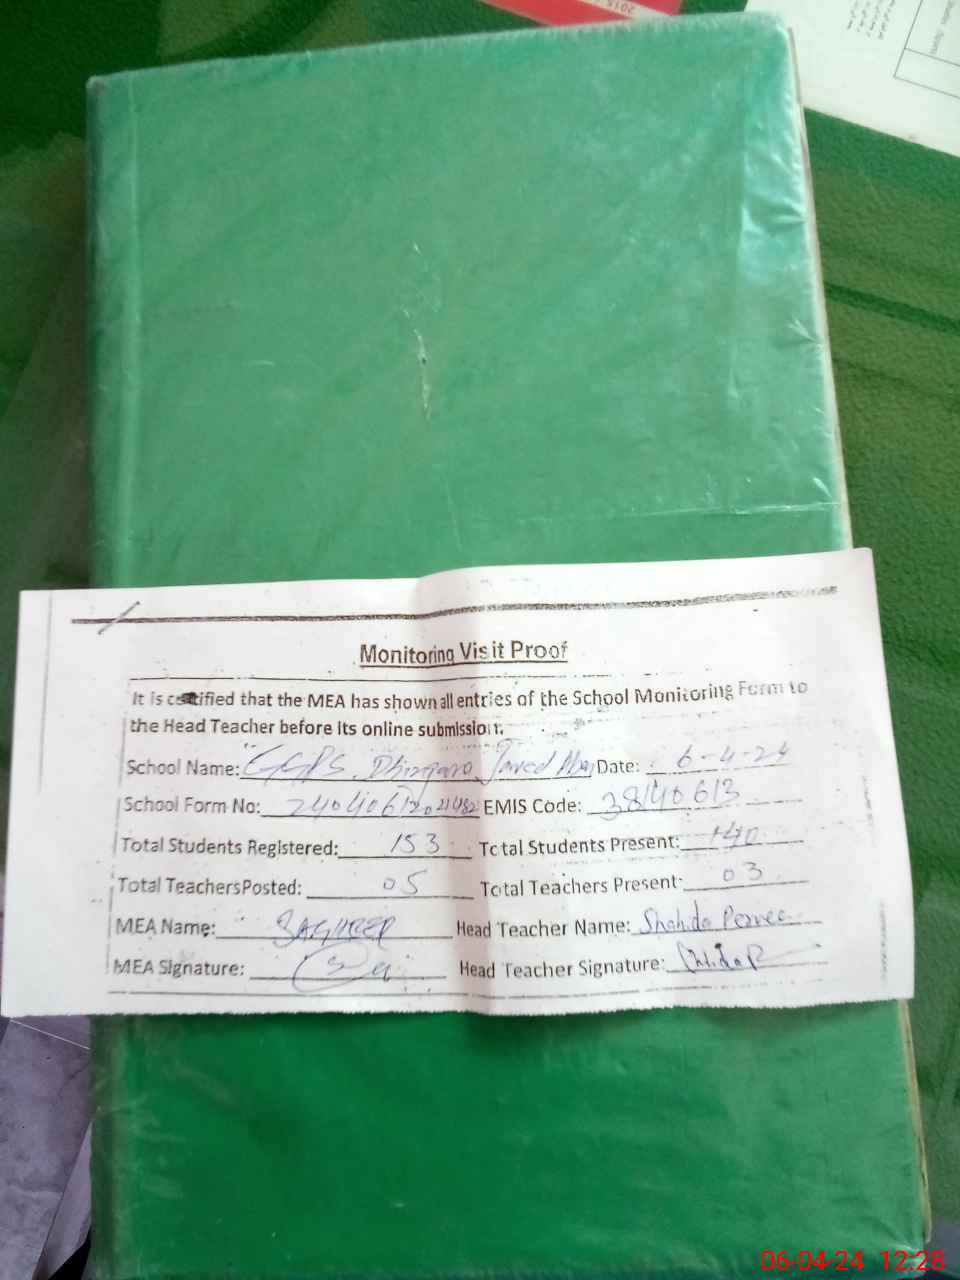 2015
Monitoring Visit Proof
It is certified that the MEA has shown all entries of the School Monitoring Form to
the Head Teacher before its online submission.
School Name: GGPS. Javed Date: 6-4-24
School Form No: EMIS Code: 38140613
Total Students Registered: 153 Total Students Present: 140
Total Teachers Posted: 05 Total Teachers Present: 03
MEA Name: Head Teacher Name: Shahida Pervee
MEA Signature: Head Teacher Signature:
06-04-24 12:28